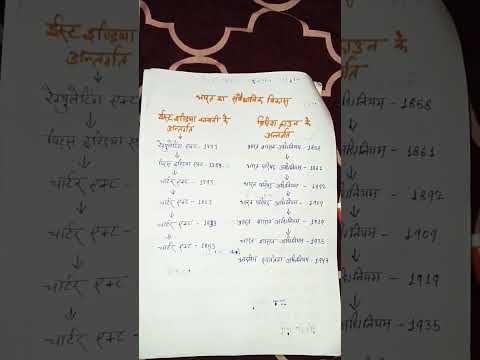 भारत का संवैधानिक विकास
ईस्ट इण्डिया कम्पनी के अन्तर्गत
रेग्युलेटिंग एक्ट - 1773
पिट्स इण्डिया एक्ट - 1784
चार्टर एक्ट - 1793
चार्टर एक्ट - 1813
चार्टर एक्ट - 1833
चार्टर एक्ट - 1853
ब्रिटिश क्राउन के अन्तर्गत
भारत शासन अधिनियम - 1858
भारत परिषद अधिनियम - 1861
भारत परिषद अधिनियम - 1892
भारत परिषद अधिनियम - 1909
भारत शासन अधिनियम - 1919
भारत शासन अधिनियम - 1935
भारतीय स्वतंत्रता अधिनियम - 1947
ईस्ट इण्डिया
अन्तर्गत
रेग्युलेटिंग एक्ट
पिट्स इण्डिया एक्ट
चार्टर एक्ट
चार्टर एक्ट
चार्टर एक्ट
चार्टर एक्ट
क्राउन के
1858
1861
1892
1909
1919
1935